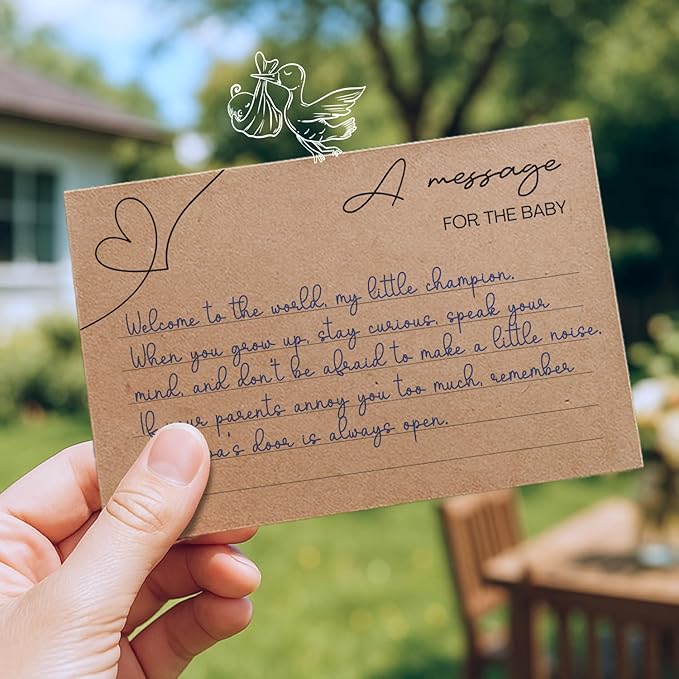 A message
FOR THE BABY
Welcome to the world, my little champion.
When you grow up, stay curious, speak your
mind, and don't be afraid to make a little noise.
If your parents annoy you too much, remember
door is always open.